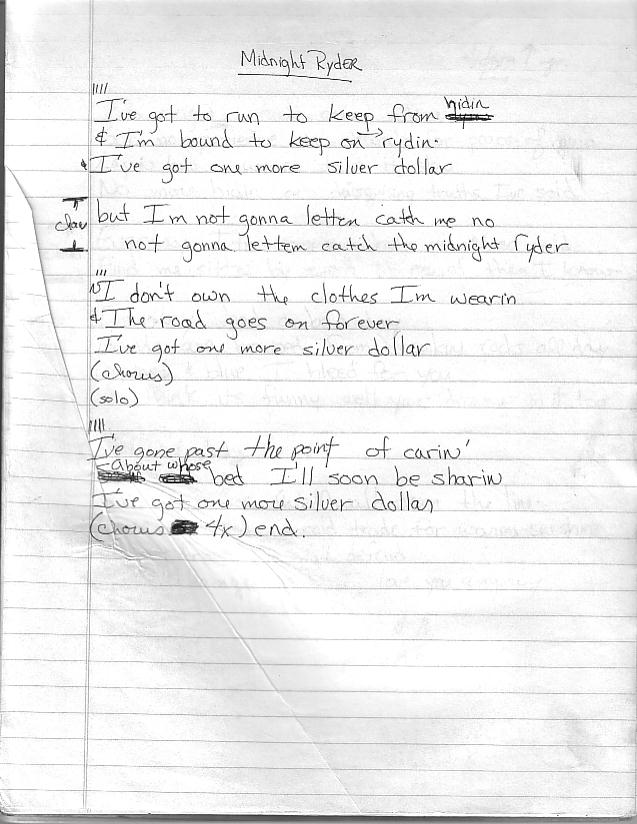 Midnight Ryder
||||
I've got to run to keep from hidin
& I'm bound to keep on → rydin.
I've got one more silver dollar
but I'm not gonna letten catch me no
not gonna lettem catch the midnight ryder
|||
I don't own the clothes I'm wearin
& The road goes on forever
I've got one more silver dollar
(chorus)
(solo)
||||
I've gone past the point of carin'
About whose
bed I'll soon be sharin
I've got one more silver dollar
(chorus 4x) end.